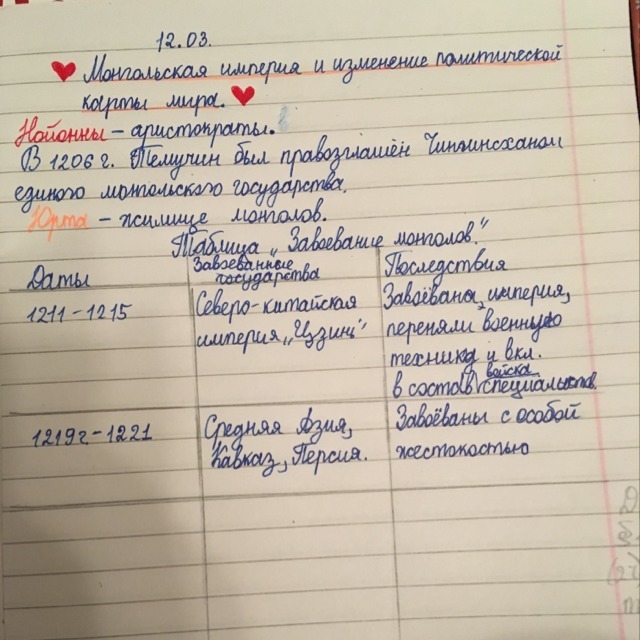 12.03.
Монгольская империя и изменение политической
карты мира.
Нойонны – аристократы.
В 1206 г. Темучин был правозглашён Чингинсханом
единого монгольского государства.
Юрта – жилище монголов.
Таблица „Завоевание монголов."
Даты
Завоеванные
государства
Последствия
1211 – 1215
Северо-китайская
империя „Цзинь"
Завоёвана, империя,
переняли военную
технику и вкл.
войска
в состав специалистов
1219г – 1221
Средняя Азия,
Кавказ, Персия.
Завоёваны с особой
жестокостью